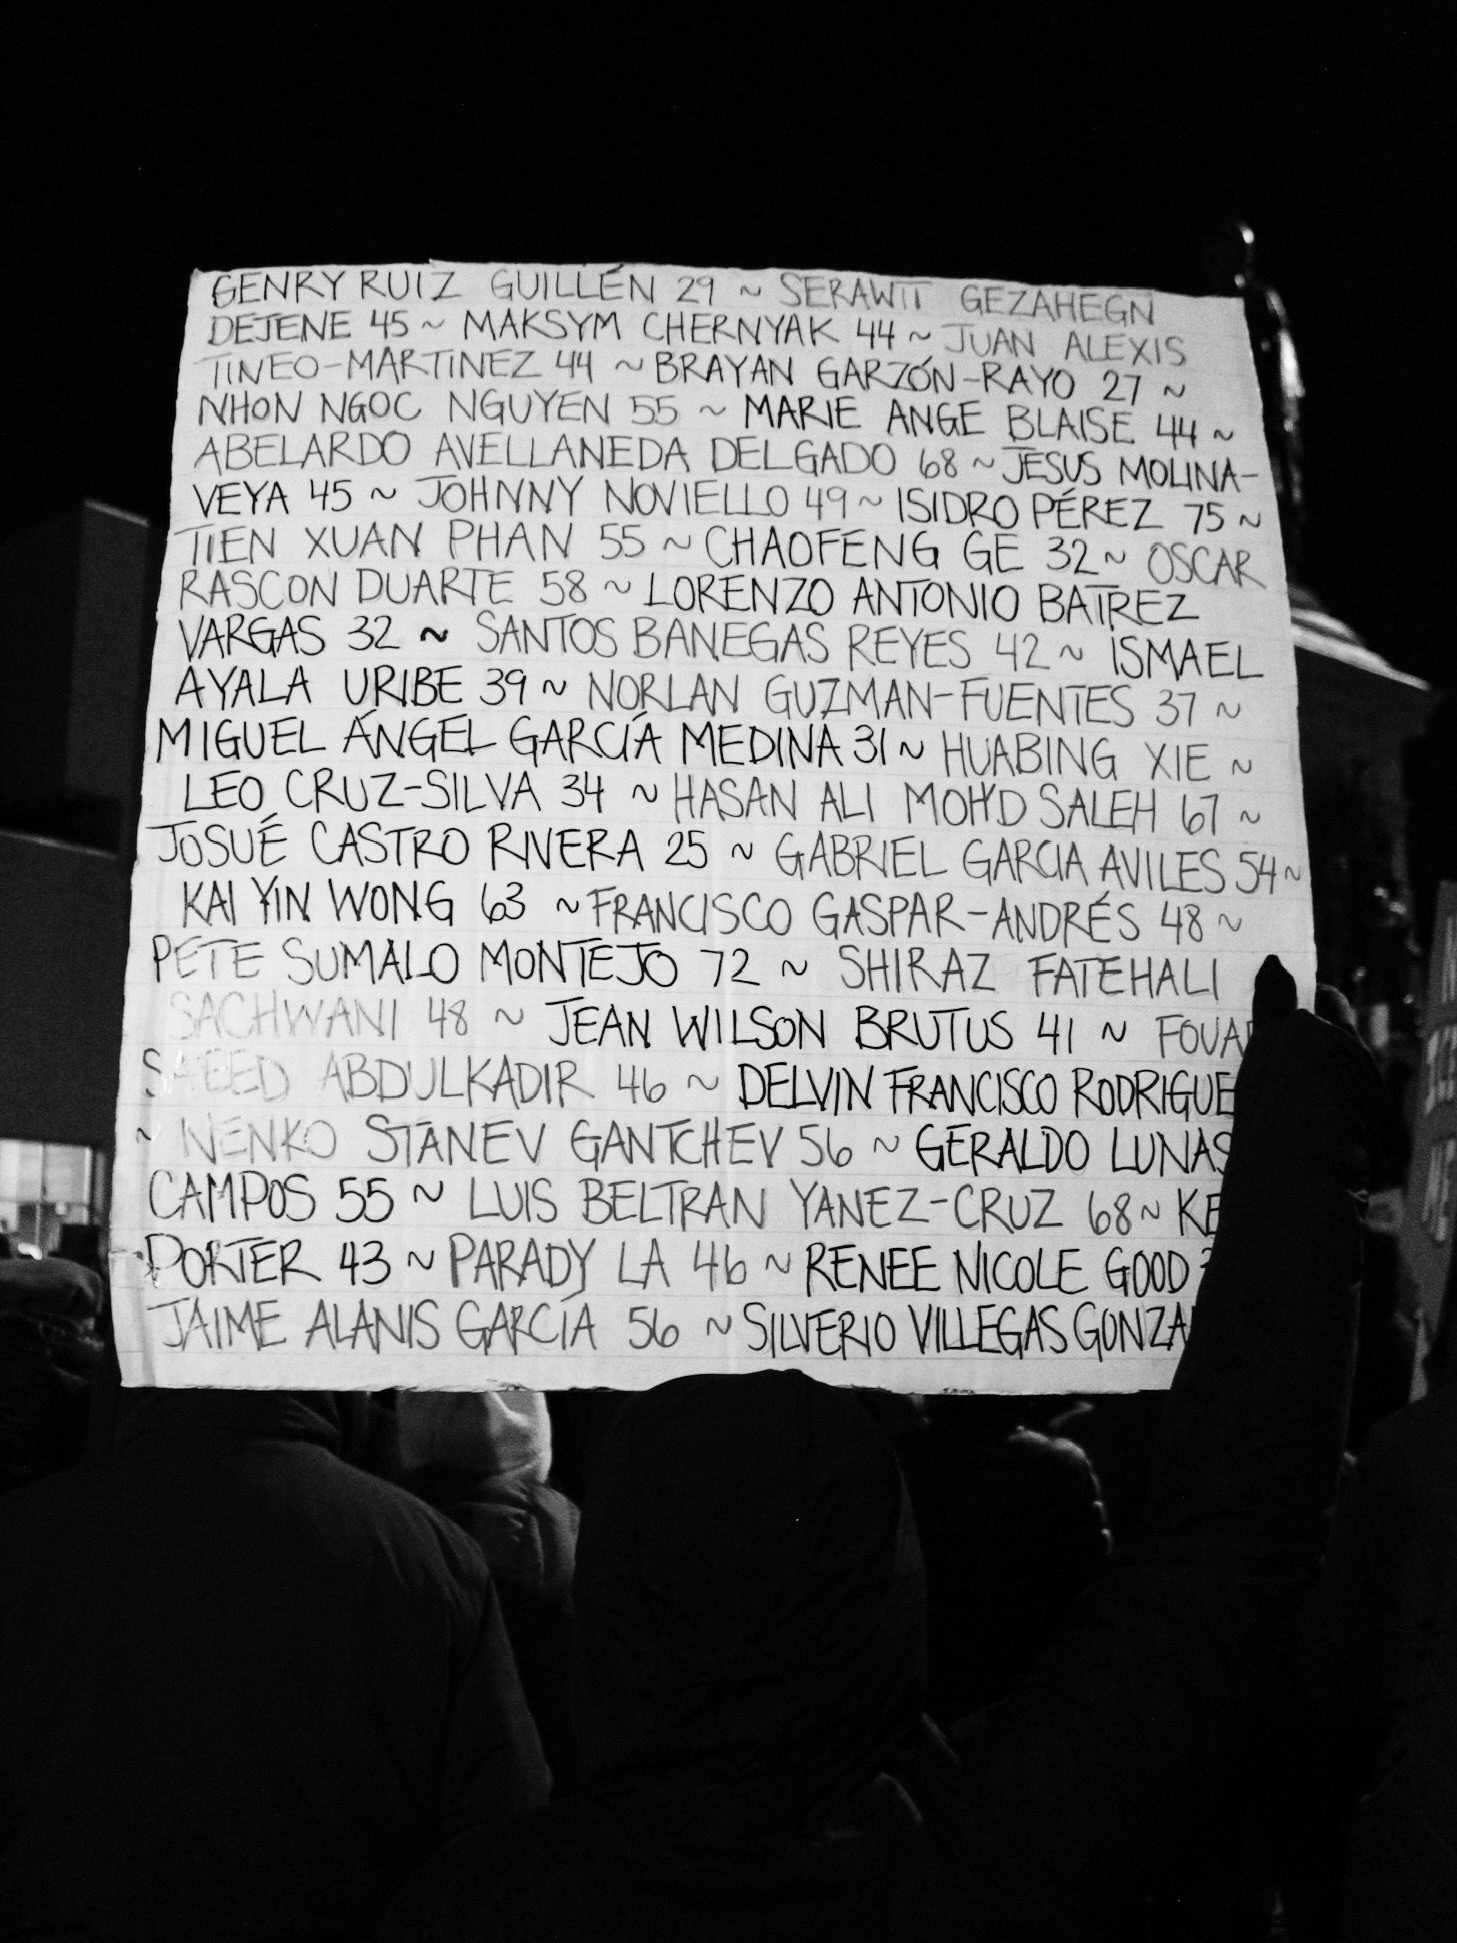 GENRY RUIZ GUILLÉN 29 ~ SERAWIT GEZAHEGN
DEJENE 45 ~ MAKSYM CHERNYAK 44 ~ JUAN ALEXIS
TINEO-MARTINEZ 44 ~ BRAYAN GARZÓN-RAYO 27 ~
NHON NGOC NGUYEN 55 ~ MARIE ANGE BLAISE 44 ~
ABELARDO AVELLANEDA DELGADO 68 ~ JESUS MOLINA-
VEYA 45 ~ JOHNNY NOVIELLO 49 ~ ISIDRO PÉREZ 75 ~
TIEN XUAN PHAN 55 ~ CHAOFENG GE 32 ~ OSCAR
RASCON DUARTE 58 ~ LORENZO ANTONIO BATREZ
VARGAS 32 ~ SANTOS BANEGAS REYES 42 ~ ISMAEL
AYALA URIBE 39 ~ NORLAN GUZMAN-FUENTES 37 ~
MIGUEL ÁNGEL GARCÍA MEDINA 31 ~ HUABING XIE ~
LEO CRUZ-SILVA 34 ~ HASAN ALI MOH'D SALEH 67 ~
JOSUÉ CASTRO RIVERA 25 ~ GABRIEL GARCIA AVILES 54 ~
KAI YIN WONG 63 ~ FRANCISCO GASPAR-ANDRÉS 48 ~
PETE SUMALO MONTEJO 72 ~ SHIRAZ FATEHALI
SACHWANI 48 ~ JEAN WILSON BRUTUS 41 ~ FOUA
SAEED ABDULKADIR 46 ~ DELVIN FRANCISCO RODRIGUE
~ NENKO STANEV GANTCHEV 56 ~ GERALDO LUNAS
CAMPOS 55 ~ LUIS BELTRAN YANEZ-CRUZ 68 ~ KE
PORTER 43 ~ PARADY LA 46 ~ RENEE NICOLE GOOD
JAIME ALANIS GARCÍA 56 ~ SILVERIO VILLEGAS GONZA